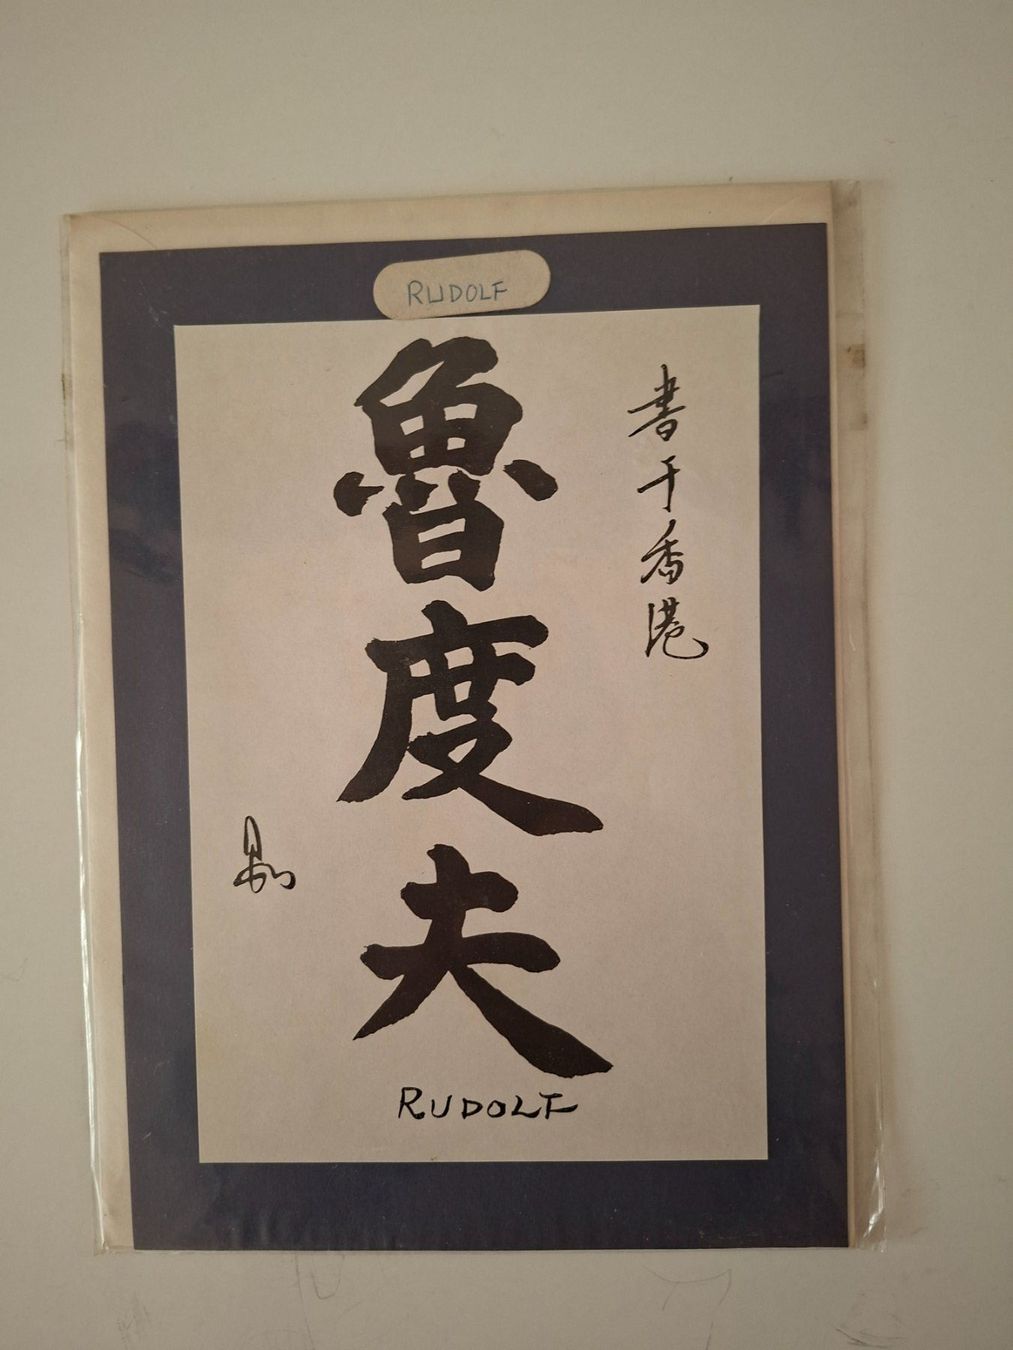 RUDOLF
書于香港
魯度夫
RUDOLF